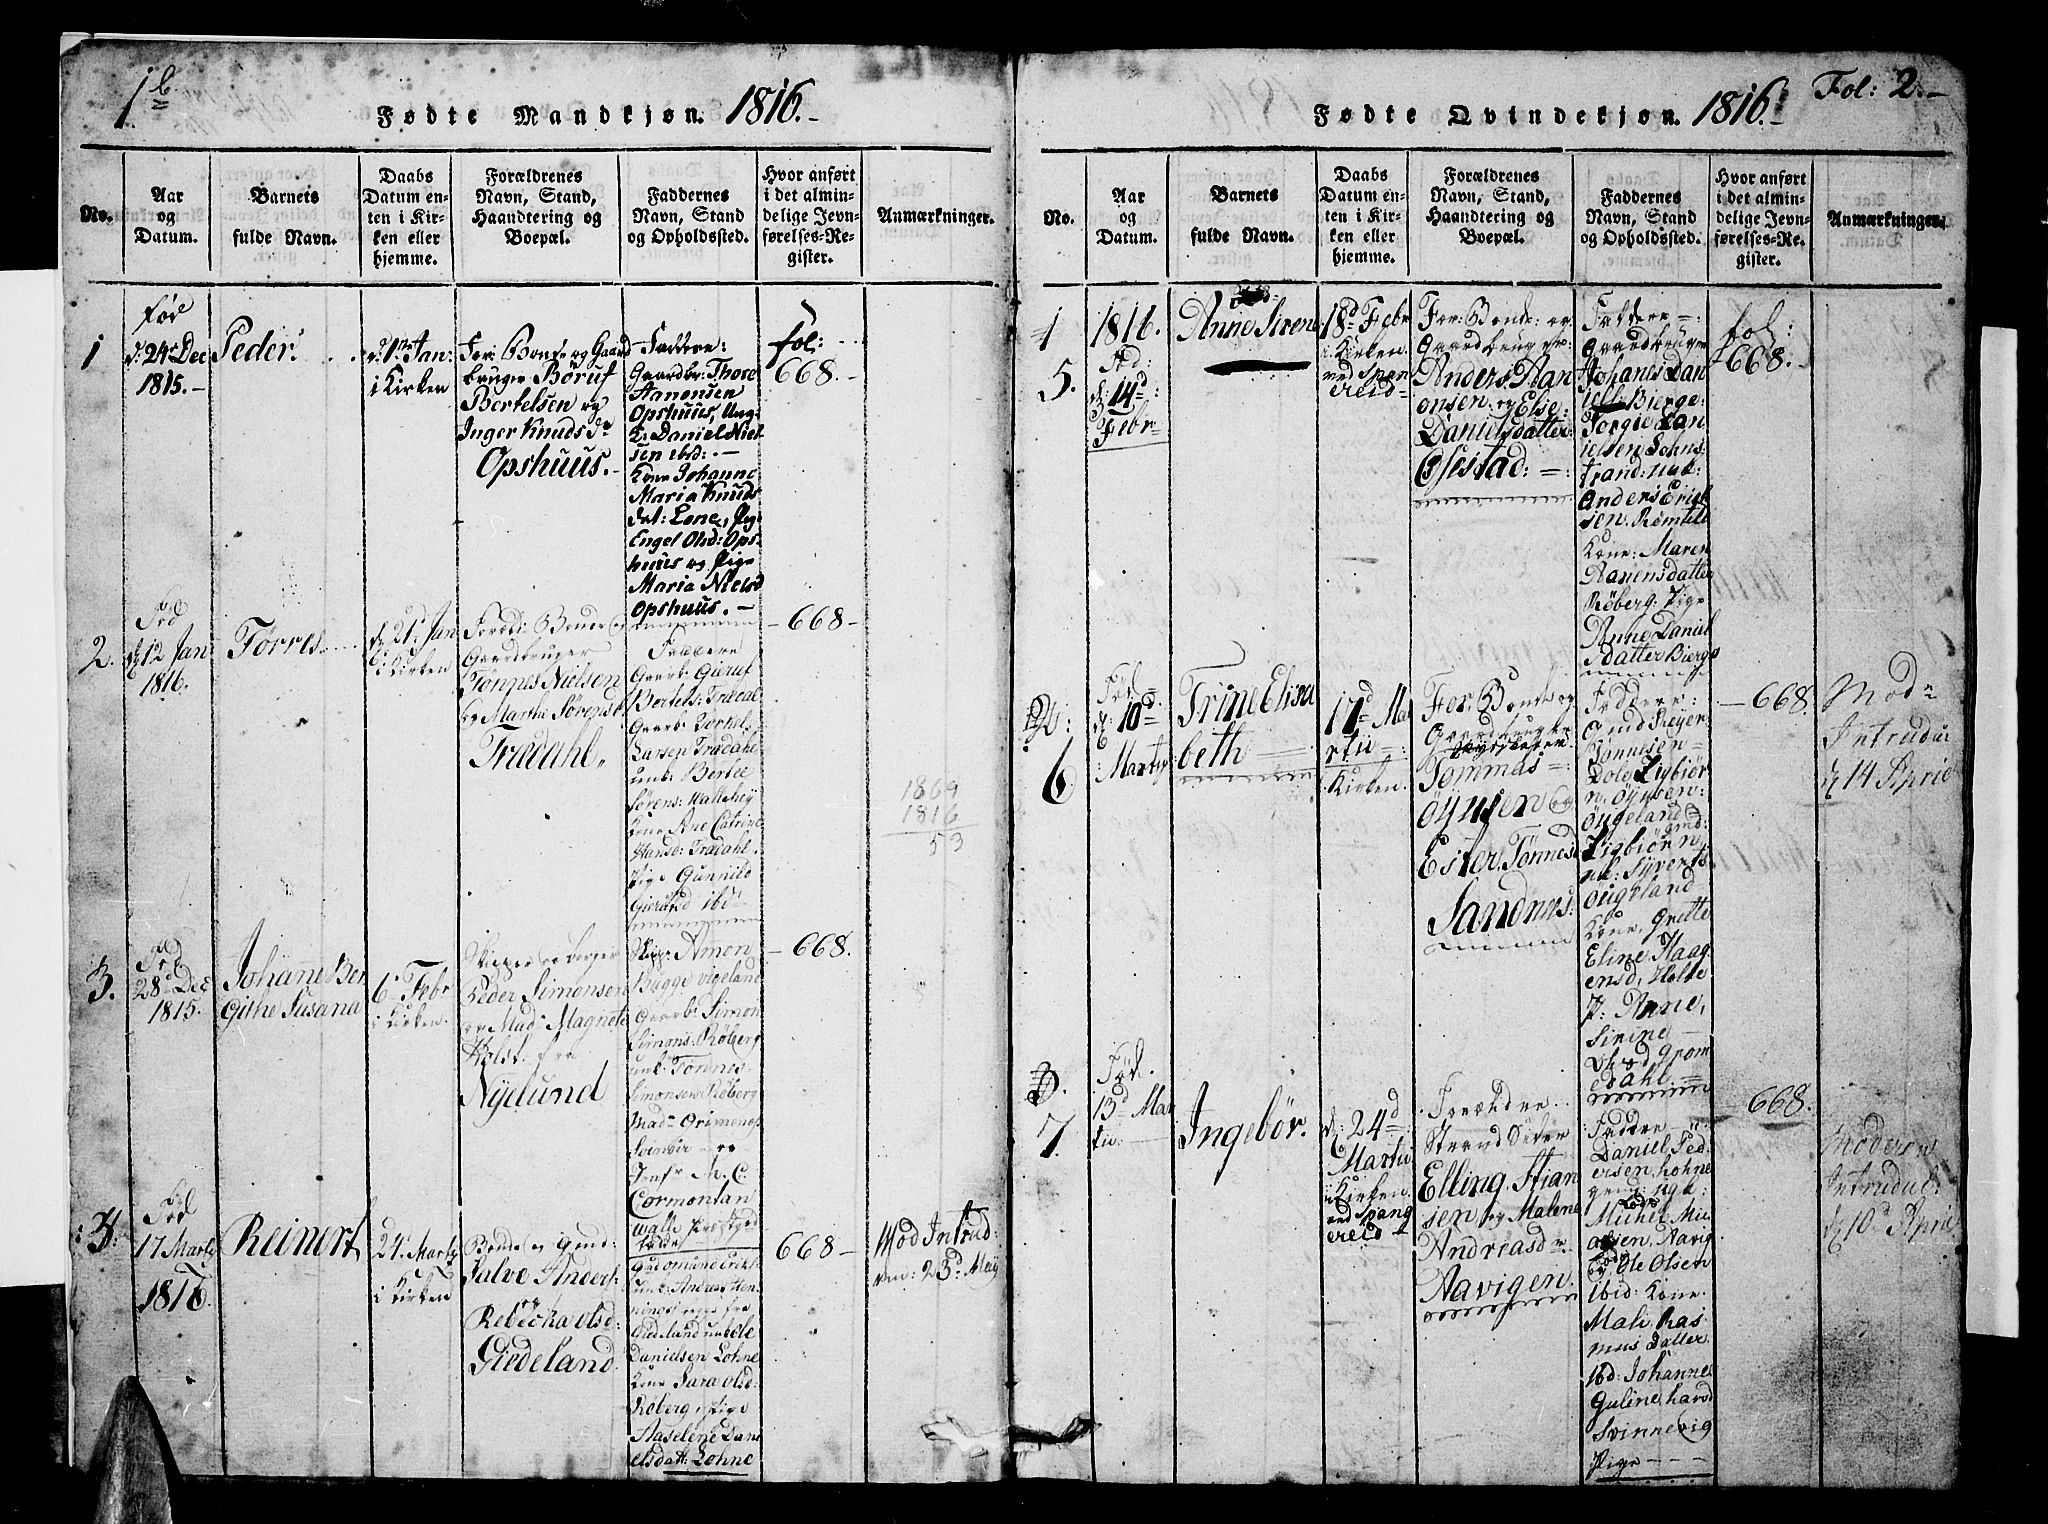 1b
Fødte Mandkjøn. 1816.-
No.
Aar
og
Datum.
Barnets
fulde Navn.
Daabs
Datum en-
ten i Kir-
ken eller
hjemme.
Forældrenes
Navn, Stand,
Haandtering og
Boepæl.
Faddernes
Navn, Stand
og Opholdssted.
Hvor anført
i det almin-
delige Jevn-
førelses-Re-
gister.
Anmærkninger.
1
fød
d: 24 Dec
1815.-
Peder.
1 Jan:
i Kirken
For: Bonde og Gaard
bruger Böruf
Bertelsen og
Inger Knuds dr
Opshuus.-
Faddere:
Gaardbr: Thore
Hanonsen
Opshuus, Ung-
k: Daniel Niel
sen ebd:.-
Kone Johanne
Maria Knuds
dat: Lone, Pig-
Engel Olsd: Ops-
huus og Pige
Maria Nielsd
Opshuus.-
fol:
668.-
2.
Fød
d: 12 Jan:
1816.
Torres
d. 21 Jan
i Kirken
Foræl: Bonde og
Gaardbruger
Tonnes Nielsen
og Marthe Sørensd
Trædahl.
Faddere
Gaarb: Gieruf
Bertels: Trædal
Gaarb: Torkel
Larsen Trædahl
unk: Bertee
Sørens: Wattehey
Kone Ane Catrine
Hansd: Trædahl.
Pige Gunnild
Gierufsd ibd
- 668 -
1869
1816
53
3.
Fød
28 Dec
1815.
Johanne Ber
Githe Susana
6 Febr
i Kirken.
Skipper og borger
Peder Simonsen
og Mad: Magnete
Holst: fra
Nyelund
Skipp: Amon
Bugge Vigeland
Gaarb: Simon
Simons: Röberg
unk: Tönnes
Simonsen Röberg
Mad: Grimeno
Svinöer og
Jomfr M. C.
Cormontan
Walle
- 668.
4
Fød
17 Marty
1816.
Reinert
24 Marty
i Kirken
Bonde og Gmd:
Salve Anders:
og
Rebecka Olsd:
Giedeland
Gudmund Erik
unk: Andreas Hen
ningsen fra
Gidland unk Ole
Danielsen Lohne
Kone Sara Olsd:
Röberg, Pige
Aaselene Dani
elsdatt: Lohne
668 -
Mod Introd:
den: 23d Maij
Fol: 2.-
Fødte Qvindekjøn. 1816.-
No.
Aar
og
Datum.
Barnets
fulde Navn.
Daabs
Datum en-
ten i Kir-
ken eller
hjemme.
Forældrenes
Navn, Stand,
Haandtering og
Boepæl.
Faddernes
Navn, Stand
og Opholdssted.
Hvor anført
i det almin-
delige Jevn-
førelses-Re-
gister.
Anmærkninger.
1
5.
1816.
d: 14d
Febr
Anne Sirene
18d Febr
i Kirken
ved Span
ereid
For: Bonde og
Gaardbruger
Anders Han
onsen og Elise
Danielsdatter
Osestad: =
Faddere =:
Gaardbruger
Johanes Dan
iels: Bierge:
Torgie Dan
ielsen Lohns
trand: unk:
Anders Erich
sen Römteld
Kone: Maren
Hanensdatter
Röberg. Pige
Anne Daniel
sdatter Bierge
fol:
668.
6
Fød
d. 10d
Marty
Trine Elisa
beth =
17d Ma
rtii =
i Kirken.
For: Bonde og
Gaardbruger
Tommas =
Öynsen og
Ester Tönnesd
Sandnes:
Faddere:
Gmd Reyer
Tönnesen
Dole Sigbiör
n. Öynsen:
Öugeland
gmd:
Sigbiörn
unk: Syverts
Ougeland
Kone, Grette
Eline Haag
ensd, Holte
P: Anne,
Sirine
Olsd, Grom
edahl. =
- 668.
Mod
Introdu:
d 14 April
3.
7.
Fød.
13d Mar
tii:
Ingebör.
d: 24d
Martii
i Kirken
ved Spang
ereid
Forældre
Strand Sider
Elling Stian
sen og Malene
Andreasd
Aavigen.
Faddere
Daniel Ped
ersen Lohne
gmd: ugk:
Michel Mic
alsen, Aavig
og Ole Olsen
ibid: Kone
Mali Ras
mus Datter
ibd: Johanne
Guline havd
Svinnevig
Pige - - -
668.
Moderen
Introdu:
d. 10d April